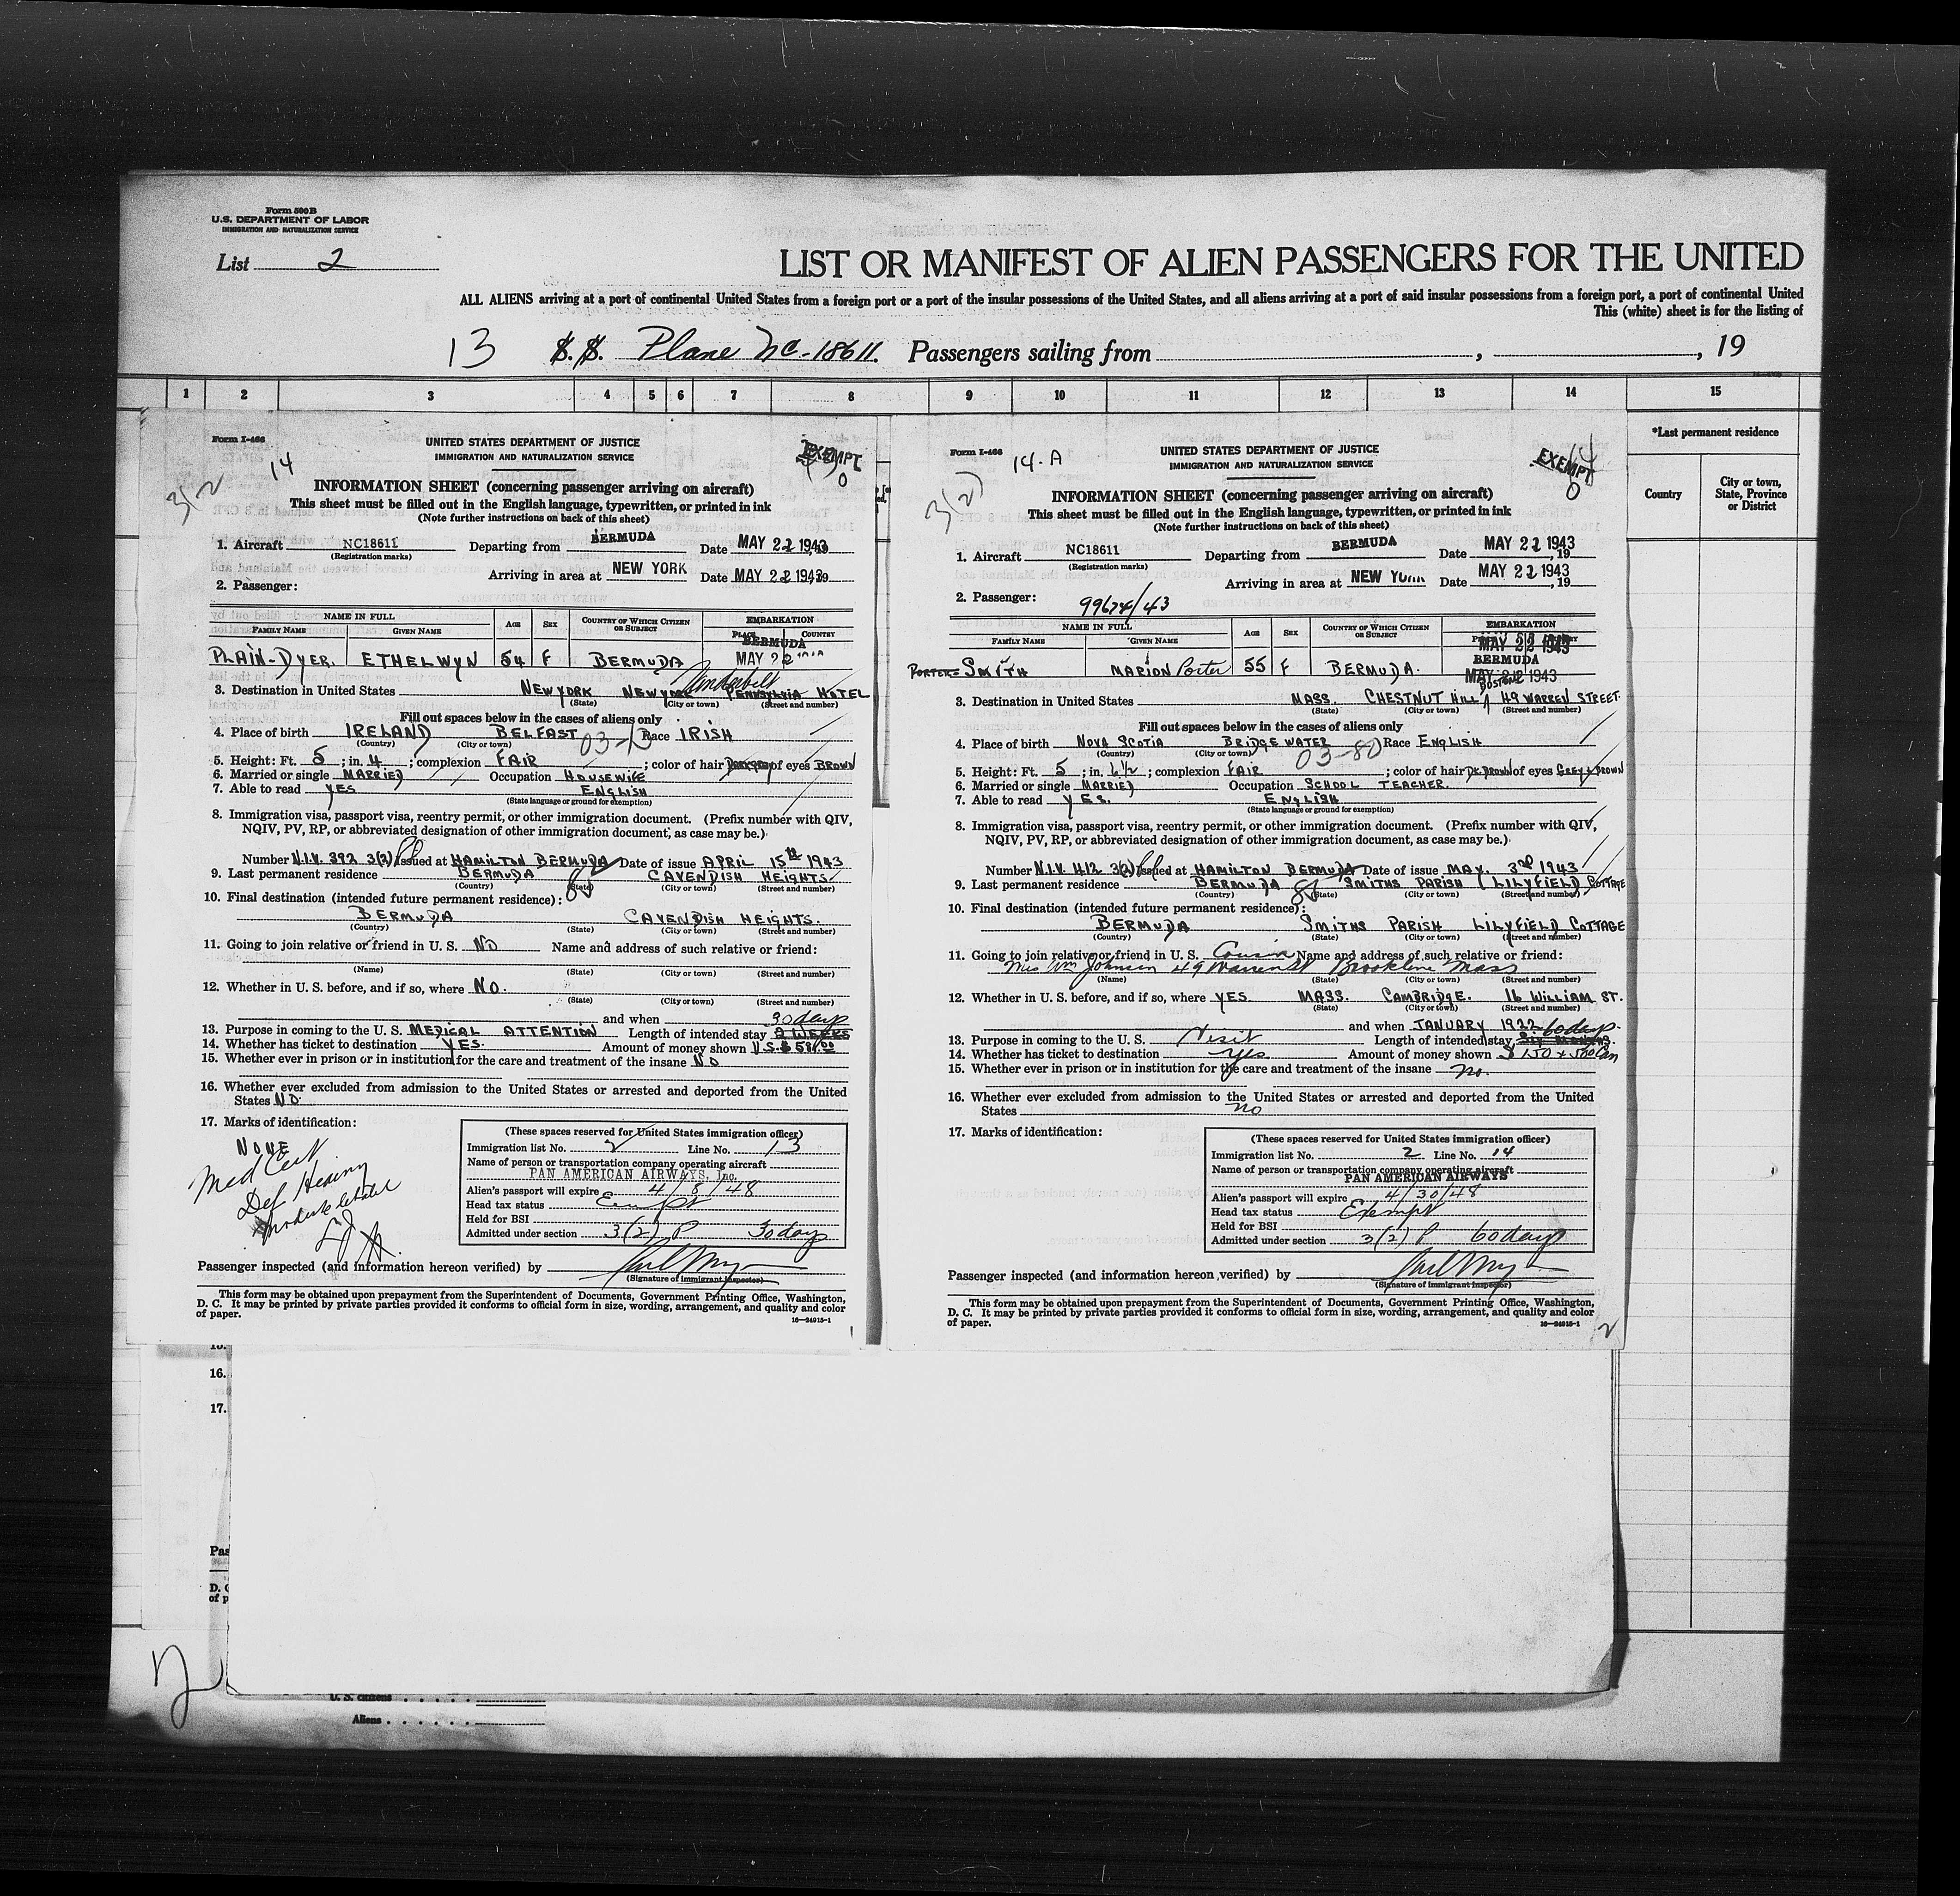 Form 500B
U.S. DEPARTMENT OF LABOR
IMMIGRATION AND NATURALIZATION SERVICE
List 2
LIST OR MANIFEST OF ALIEN PASSENGERS FOR THE UNITED
ALL ALIENS arriving at a port of continental United States from a foreign port or a port of the insular possessions of the United States, and all aliens arriving at a port of said insular possessions from a foreign port, a port of continental United
This (white) sheet is for the listing of
13 S.S. Plane NC-18611. Passengers sailing from , , 19
1 2 3 4 5 6 7 8 9 10 11 12 13 14 15
*Last permanent residence
Country
City or town, State, Province or District
Form I-466
14
3(2)
UNITED STATES DEPARTMENT OF JUSTICE
IMMIGRATION AND NATURALIZATION SERVICE
EXEMPT
0
INFORMATION SHEET (concerning passenger arriving on aircraft)
This sheet must be filled out in the English language, typewritten, or printed in ink
(Note further instructions on back of this sheet)
1. Aircraft NC18611 Departing from BERMUDA Date MAY 22 1943, 19
(Registration marks)
Arriving in area at NEW YORK Date MAY 22 1943, 19
2. Passenger:
NAME IN FULL AGE SEX COUNTRY OF WHICH CITIZEN OR SUBJECT EMBARKATION
FAMILY NAME GIVEN NAME PLACE COUNTRY
BERMUDA
PLAIN-DYER. ETHELWYN 54 F BERMUDA MAY 22
Vanderbilt
3. Destination in United States NEW YORK NEW YORK PENNSYLVIA HOTEL
(State) (City or town) (Street and number)
Fill out spaces below in the cases of aliens only
4. Place of birth IRELAND BELFAST 03-13 Race IRISH
(Country) (City or town)
5. Height: Ft. 5; in. 4; complexion FAIR; color of hair of eyes BROWN
6. Married or single MARRIED Occupation HOUSEWIFE
7. Able to read YES ENGLISH
(State language or ground for exemption)
8. Immigration visa, passport visa, reentry permit, or other immigration document. (Prefix number with QIV,
NQIV, PV, RP, or abbreviated designation of other immigration document, as case may be.)
Number N.I.V. 392 3(2) Issued at HAMILTON BERMUDA Date of issue APRIL 15th 1943
9. Last permanent residence BERMUDA CAVENDISH HEIGHTS
(Country) (State) (City or town) (Street and number)
10. Final destination (intended future permanent residence):
BERMUDA CAVENDISH HEIGHTS.
(Country) (State) (City or town) (Street and number)
11. Going to join relative or friend in U. S. NO Name and address of such relative or friend:
(Name) (State) (City or town) (Street and number)
12. Whether in U. S. before, and if so, where NO.
(State) (City or town) (Street and number)
and when
30 days
13. Purpose in coming to the U. S. MEDICAL ATTENTION Length of intended stay 2 WEEKS
14. Whether has ticket to destination YES. Amount of money shown U.S.$
15. Whether ever in prison or in institution for the care and treatment of the insane NO
16. Whether ever excluded from admission to the United States or arrested and deported from the United
States NO.
17. Marks of identification:
NONE
Med Cert
Def Hearing
(These spaces reserved for United States immigration officer)
Immigration list No. 2 Line No. 13
Name of person or transportation company operating aircraft
PAN AMERICAN AIRWAYS, Inc.
Alien's passport will expire 4/8/48
Head tax status Exempt
Held for BSI
Admitted under section 3(2) P 30 days
Passenger inspected (and information hereon verified) by
(Signature of immigrant inspector)
This form may be obtained upon prepayment from the Superintendent of Documents, Government Printing Office, Washington,
D. C. It may be printed by private parties provided it conforms to official form in size, wording, arrangement, and quality and color
of paper.
16—24915-1
Form I-466
14-A
3(2)
UNITED STATES DEPARTMENT OF JUSTICE
IMMIGRATION AND NATURALIZATION SERVICE
14
EXEMPT
0
INFORMATION SHEET (concerning passenger arriving on aircraft)
This sheet must be filled out in the English language, typewritten, or printed in ink
(Note further instructions on back of this sheet)
1. Aircraft NC18611 Departing from BERMUDA Date MAY 22 1943, 19
(Registration marks)
Arriving in area at NEW YORK Date MAY 22 1943, 19
2. Passenger:
NAME IN FULL AGE SEX COUNTRY OF WHICH CITIZEN OR SUBJECT EMBARKATION
FAMILY NAME GIVEN NAME MAY 22 1943
BERMUDA
PORTER-SMITH MARION Porter 55 F BERMUDA. MAY 22 1943
BOSTON
3. Destination in United States MASS. CHESTNUT HILL 49 WARREN STREET.
(State) (City or town) (Street and number)
Fill out spaces below in the cases of aliens only
4. Place of birth NOVA SCOTIA BRIDGEWATER 03-80 Race ENGLISH
(Country) (City or town)
5. Height: Ft. 5; in. 6 1/2; complexion FAIR; color of hair DK. BROWN of eyes GREY & BROWN
6. Married or single MARRIED Occupation SCHOOL TEACHER.
7. Able to read YES. ENGLISH
(State language or ground for exemption)
8. Immigration visa, passport visa, reentry permit, or other immigration document. (Prefix number with QIV,
NQIV, PV, RP, or abbreviated designation of other immigration document, as case may be.)
Number N.I.V. 412 3(2) Issued at HAMILTON BERMUDA Date of issue MAY. 3rd 1943
9. Last permanent residence BERMUDA SMITHS PARISH (LILYFIELD COTTAGE
(Country) (State) (City or town) (Street and number)
10. Final destination (intended future permanent residence):
BERMUDA SMITHS PARISH LILYFIELD COTTAGE
(Country) (State) (City or town) (Street and number)
11. Going to join relative or friend in U. S. Cousin Name and address of such relative or friend:
Mrs Wm Johnson 49 Warren St Brookline Mass
(Name) (State) (City or town) (Street and number)
12. Whether in U. S. before, and if so, where YES. MASS. CAMBRIDGE. 16 WILLIAM ST.
(State) (City or town) (Street and number)
and when JANUARY 1922 60 days.
13. Purpose in coming to the U. S. Visit Length of intended stay
14. Whether has ticket to destination Yes Amount of money shown $150 +
15. Whether ever in prison or in institution for the care and treatment of the insane no.
16. Whether ever excluded from admission to the United States or arrested and deported from the United
States no
17. Marks of identification:
(These spaces reserved for United States immigration officer)
Immigration list No. 2 Line No. 14
Name of person or transportation company operating aircraft
PAN AMERICAN AIRWAYS
Alien's passport will expire 4/30/48
Head tax status Exempt
Held for BSI
Admitted under section 3(2) P 60 days
Passenger inspected (and information hereon verified) by
(Signature of immigrant inspector)
This form may be obtained upon prepayment from the Superintendent of Documents, Government Printing Office, Washington,
D. C. It may be printed by private parties provided it conforms to official form in size, wording, arrangement, and quality and color
of paper.
16—24915-1
2
16.
17.
Pas
D. C
of p
2
U. S. citizens
Aliens